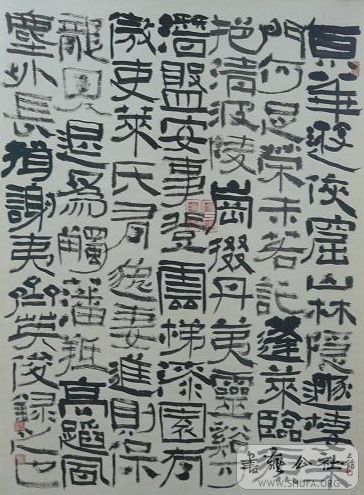 京華遊俠窟山林隱遯棲朱
門何足榮未若託蓬萊臨源
挹清波陵崗掇丹荑靈谿可
潛盤安事登雲梯漆園有
傲吏萊氏有逸妻進則保
龍見退爲觸藩羝高蹈風
塵外長揖謝夷齊英俊錄
書法公社
WWW.SHUFA.ORG